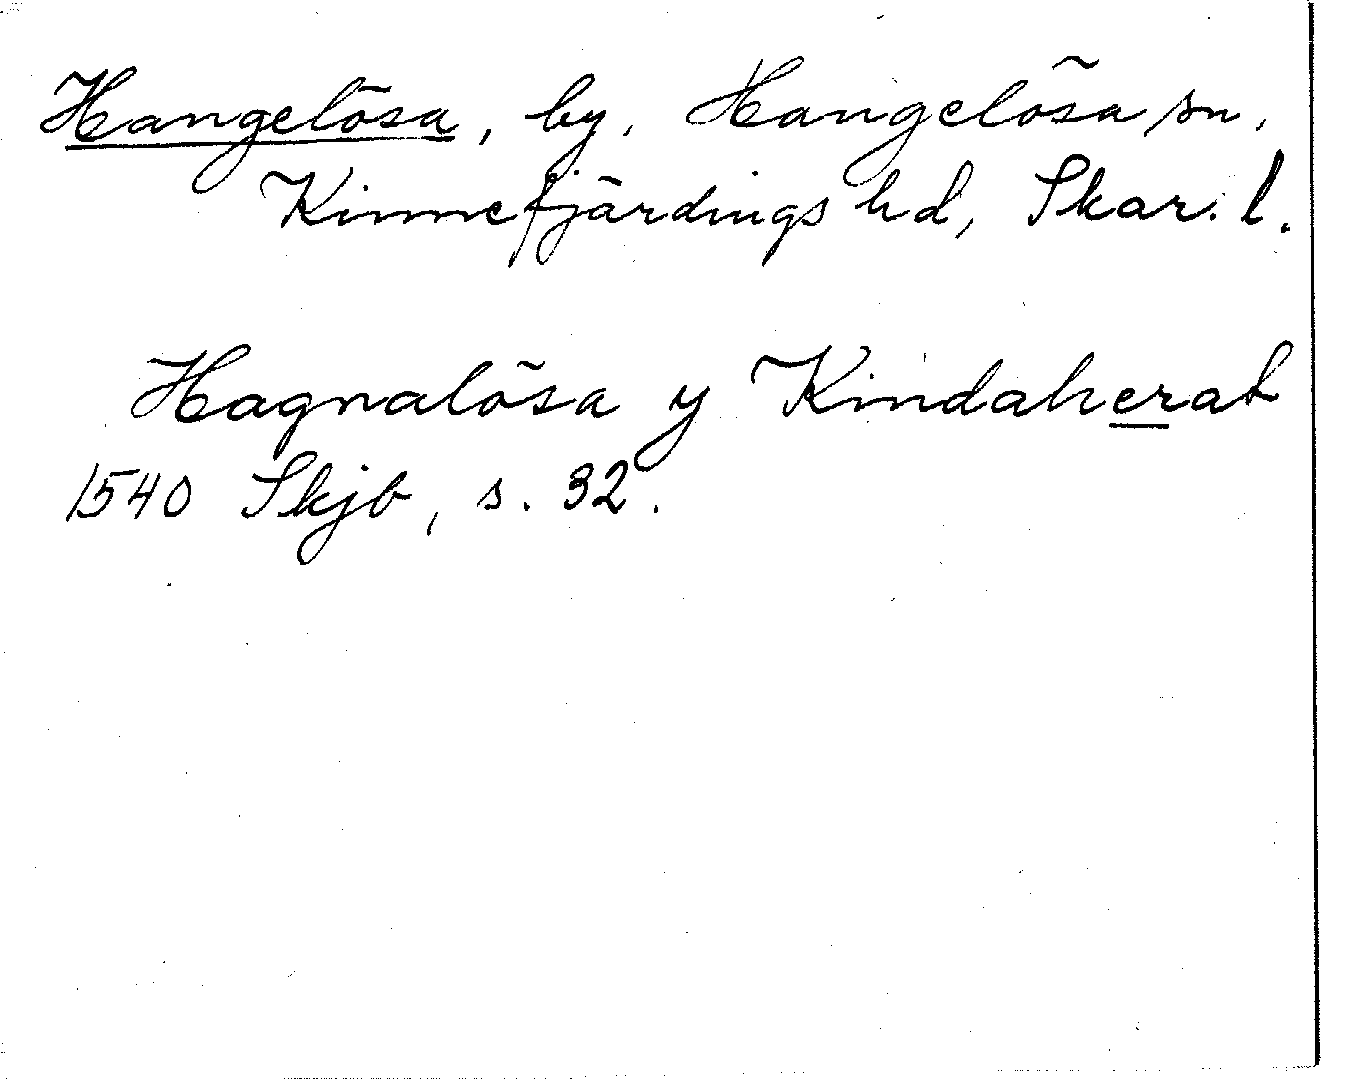 Hangelösa, by, Hangelösa sn,
Kinnefjärdings hd, Skar. l.
Hagnalösa y Kindaherat
1540 Skjb, s. 32.